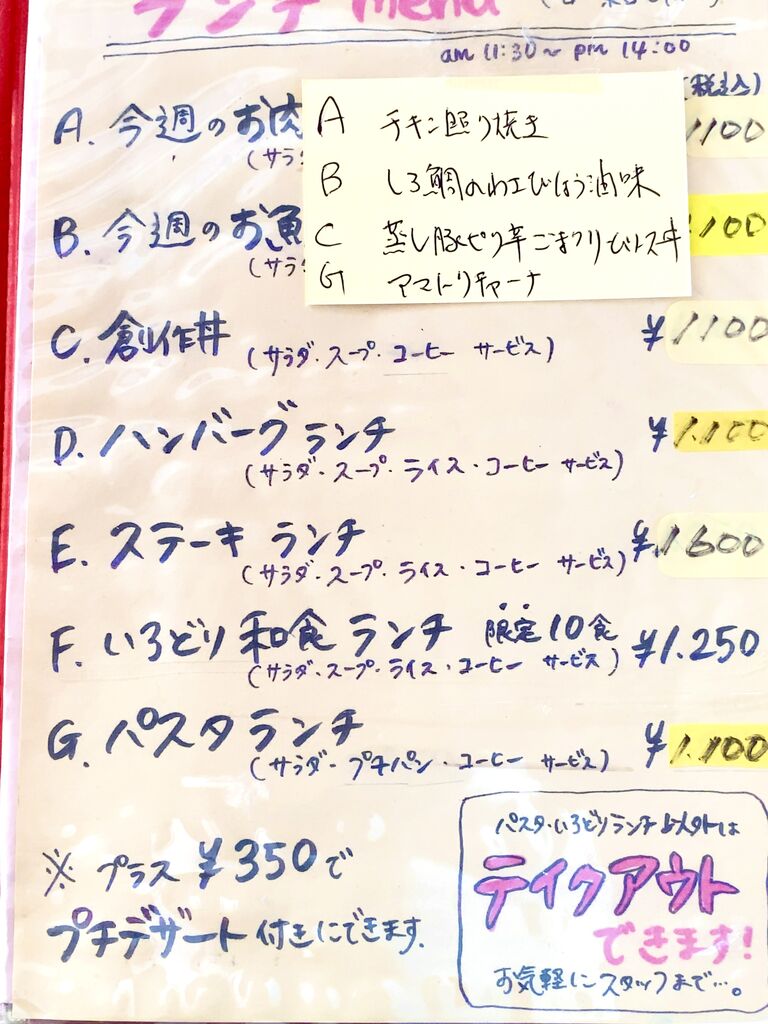 ランチ menu
am 11:30~ pm 14:00
(税込)
A. 今週のお肉
1100
(サラ
A チキン照り焼き
B しろ鯛のわさびしょう油味
C 蒸し豚ピリ辛ごまクリームソース丼
G アマトリチャーナ
B. 今週のお魚
100
(サラ
C. 創作丼 (サラダ・スープ・コーヒー サービス) ¥1100
D. ハンバーグランチ ¥1.100
(サラダ・スープ・ライス・コーヒー サービス)
E. ステーキ ランチ ¥1600
(サラダ・スープ・ライス・コーヒー サービス)
F. いろどり 和食 ランチ 限定10食 ¥1.250
(サラダ・スープ・ライス・コーヒー サービス)
G. パスタ ランチ ¥1.100
(サラダ・プチパン・コーヒー サービス)
※ プラス ¥350で
プチデザート付きにできます.
パスタ・いろどりランチ以外は
テイクアウト
できます!
お気軽にスタッフまで…。